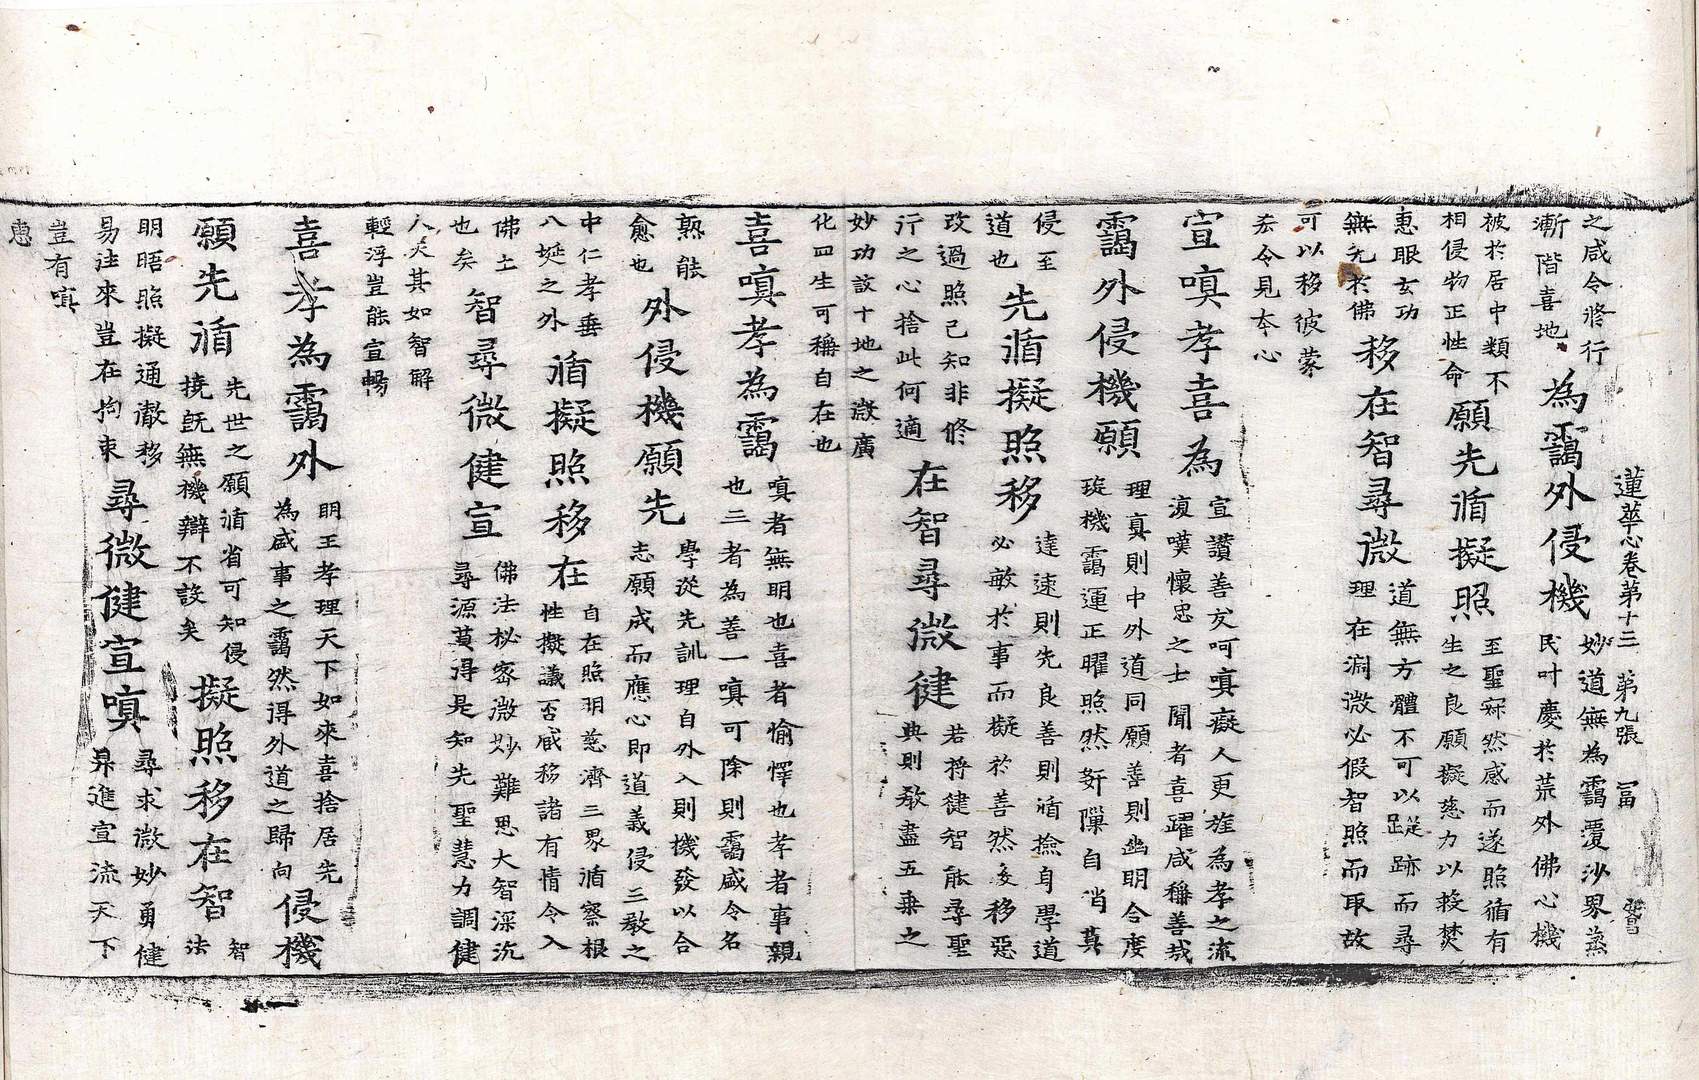 蓮華心卷第十三　第九張　冨
之咸令修行
漸階喜地
為靄外侵機
妙道無為靄覆沙界蒸
民叶慶於荒外佛心機
被於居中類不
相侵物正性命
願先循擬照
至聖寂然感而遂照循有
生之良願擬慈力以救焚
惠眼玄功
無先於佛
移在智尋微
道無方體不可以蹤跡而尋
理在淵微必假智照而取故
可以移彼蒙
去令見本心
宣嗔孝喜為
宣讚善友呵嗔癡人更旌為孝之流
演嘆懷忠之士聞者喜躍咸稱善哉
靄外侵機願
理真則中外道同願善則幽明合度
璇機靄運正曜照然姧隟自消莫
侵至
道也
先循擬照移
達速則先良善則循撿身學道
必敏於事而擬於善然後移惡
改過照己知非修
行之心捨此何適
在智尋微健
若将健智能尋聖
典則教盡五乗之
妙功該十地之微廣
化四生可稱自在也
喜嗔孝為靄
嗔者無明也喜者愉懌也孝者事親
也三者為善一嗔可除則靄盛令名
熟能
愈也
外侵機願先
學從先訓理自外入則機發以合
志願成而應心即道義侵三教之
中仁孝垂
八埏之外
循擬照移在
自在照明慈濟三界循察根
性擬議否臧移諸有情令入
佛土
也矣
智尋微健宣
佛法秘密微妙難思大智深沉
尋源莫得是知先聖慧力調健
人天其如智解
輕浮豈能宣暢
喜孝為靄外
明王孝理天下如來喜捨居先
為盛事之靄然得外道之歸向
侵機
願先循
先世之願循省可知侵
撓既無機辯不該矣
擬照移在智
智
法
明晤照擬通澈移
易往來豈在拘束
尋微健宣嗔
尋求微妙勇健
昇進宣流天下
豈有嗔
恚